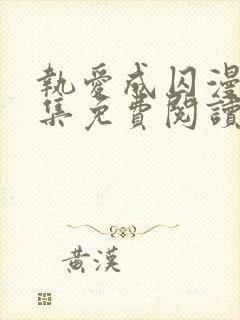 執愛成囚漫
集免費閱讀
黃漢